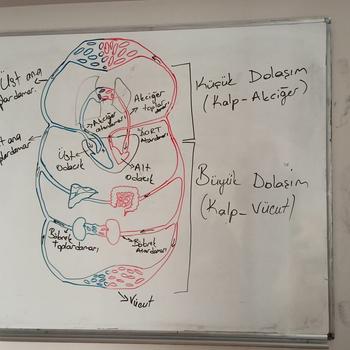 Üst ana
Akciğer
atardamarı
Akciğer
toplar
damarı
AORT
Atardamarı
Üst
Odacık
Alt
Odacık
Böbrek
Toplardamarı
Böbrek
Atardamarı
Vücut
Küçük Dolaşım
(Kalp-Akciğer)
Büyük Dolaşım
(Kalp-Vücut)